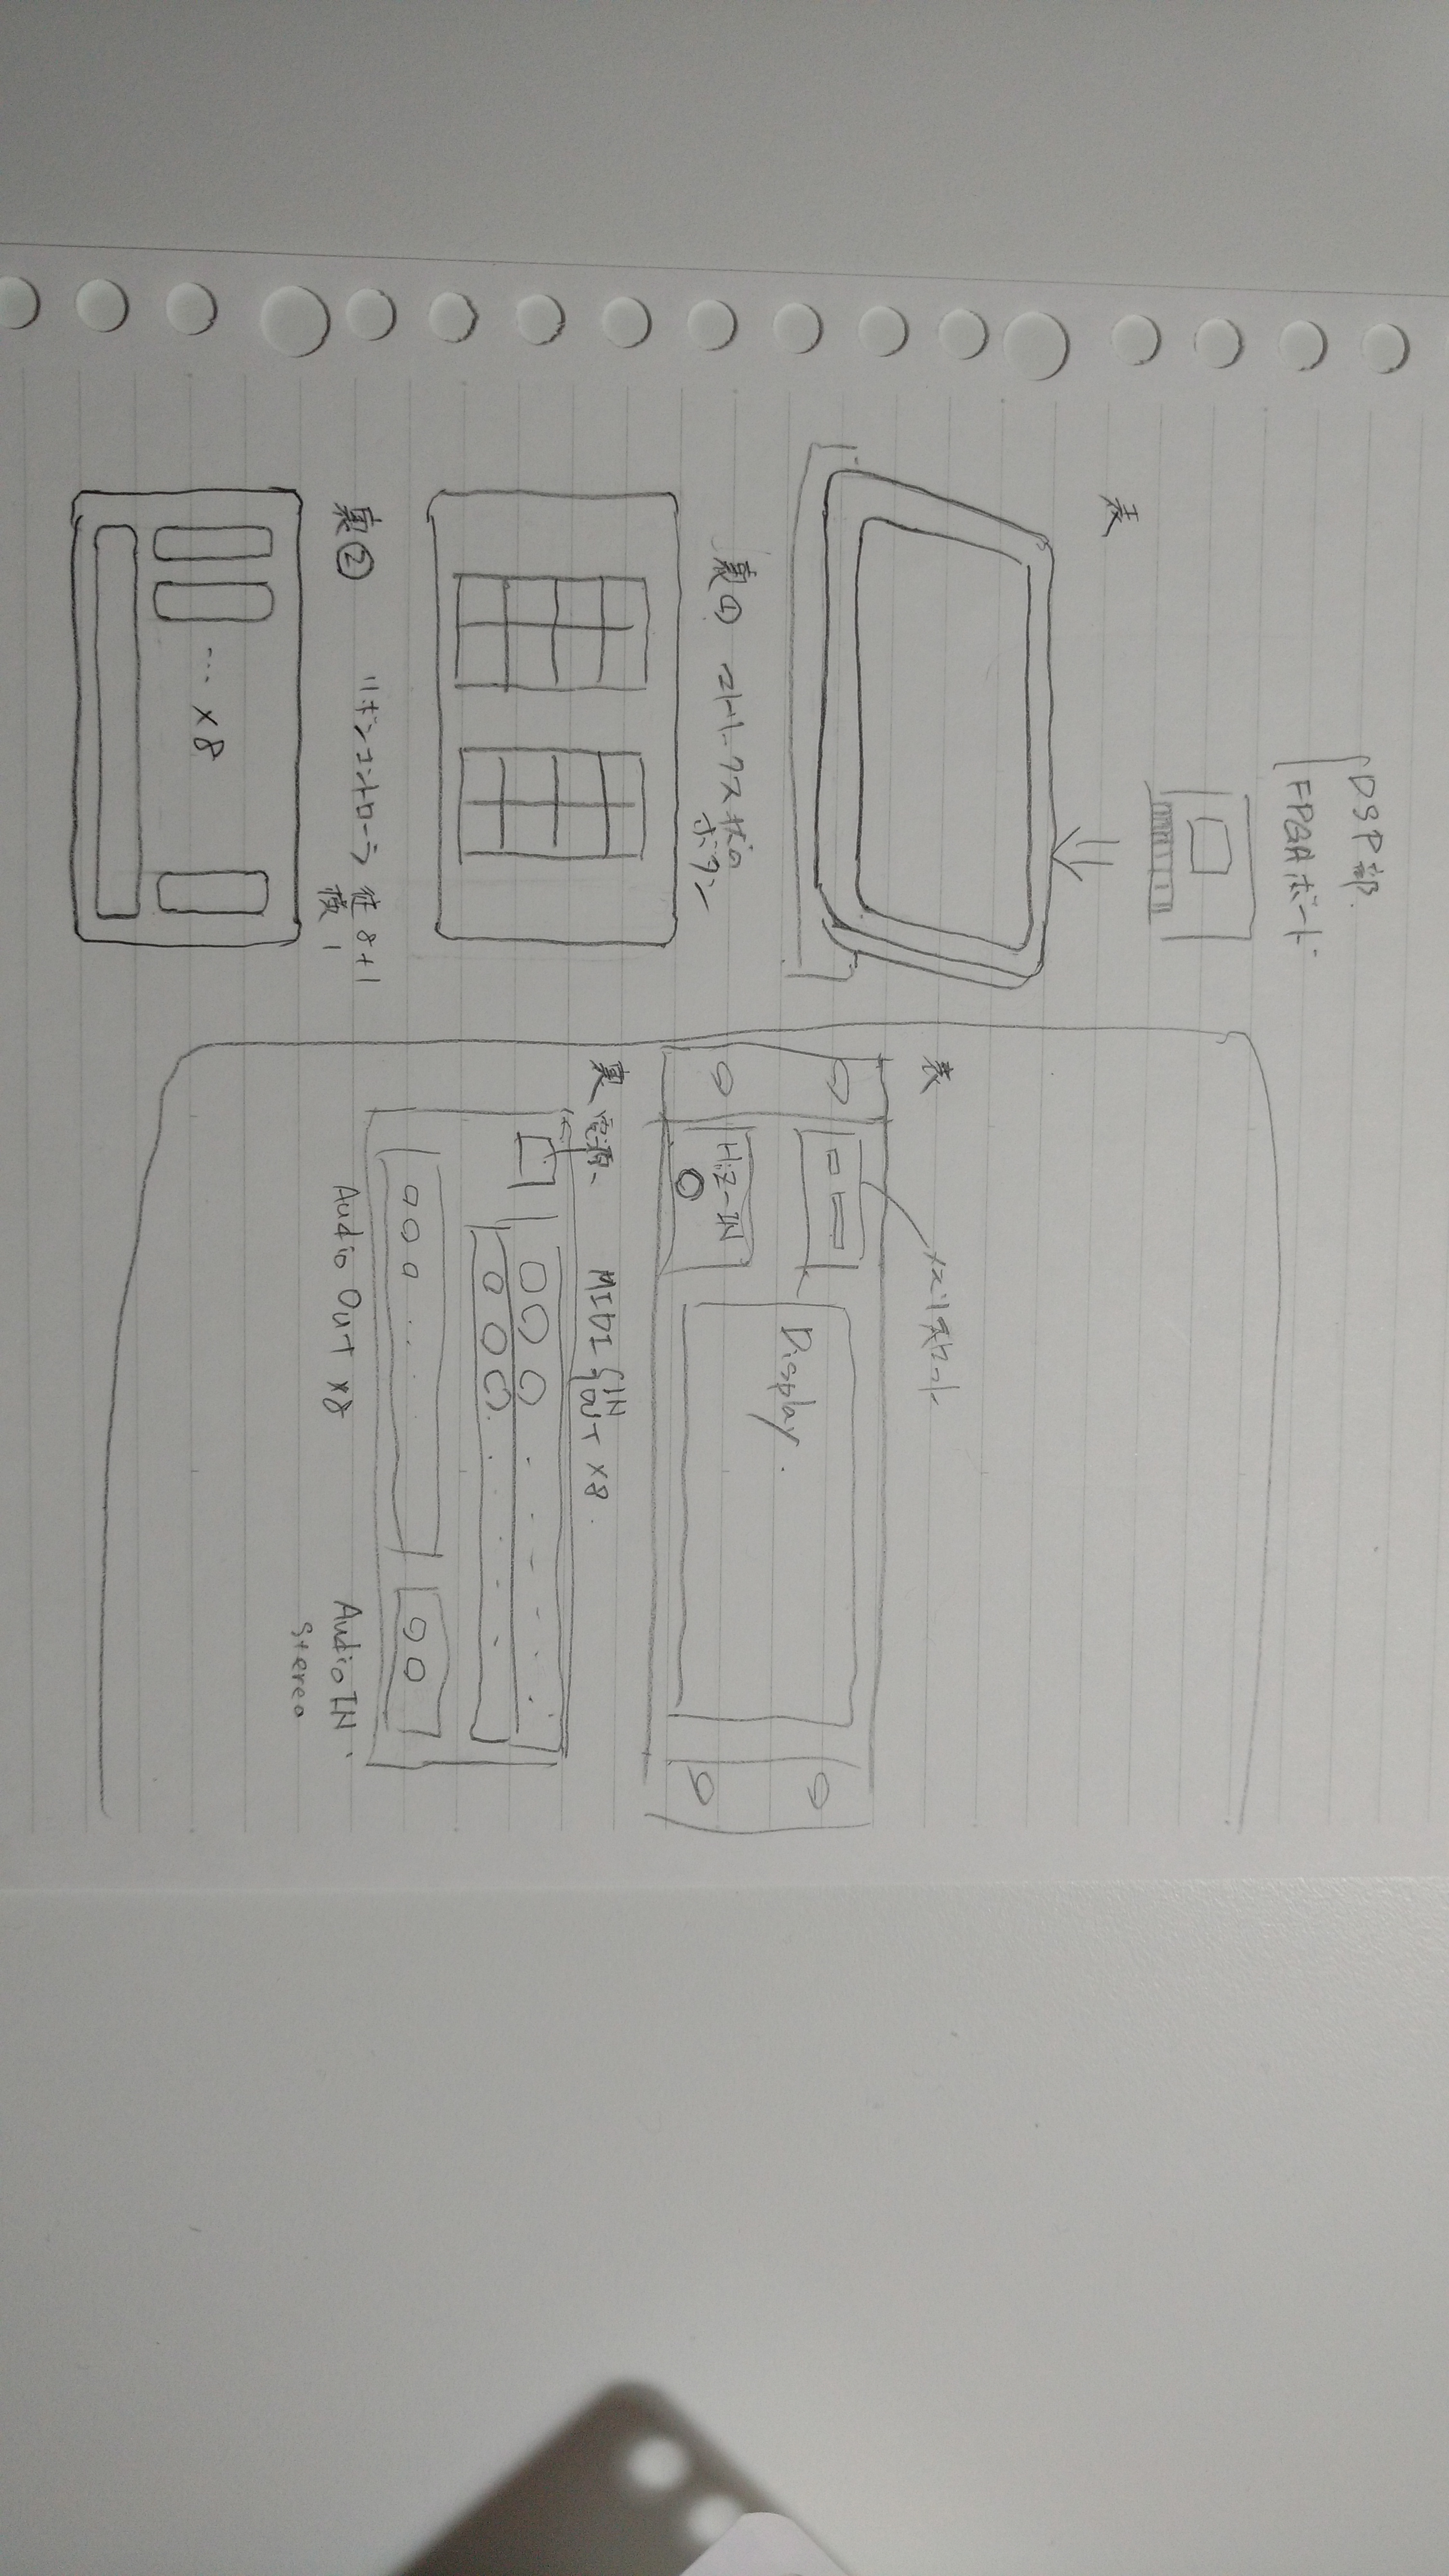 DSP部.
FPGAボード
表
裏① マトリクス状の
ボタン
裏② リボンコントローラ 縦 8+1
横 1
… × 8
表
メモリスロット
Hi-Z-IN
Display.
裏 電源
MIDI IN
OUT ×8.
Audio Out ×8
Audio IN
Stereo